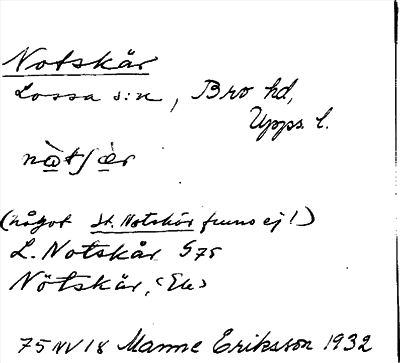 Notskär
Lossa s:n, Bro hd,
Upps. l.
nɷ̀tʃæ̀r
(något St. Notskär finns ej!)
L. Notskär G75
Nötskär, <Ek>
75 NV 18 Manne Eriksson 1932